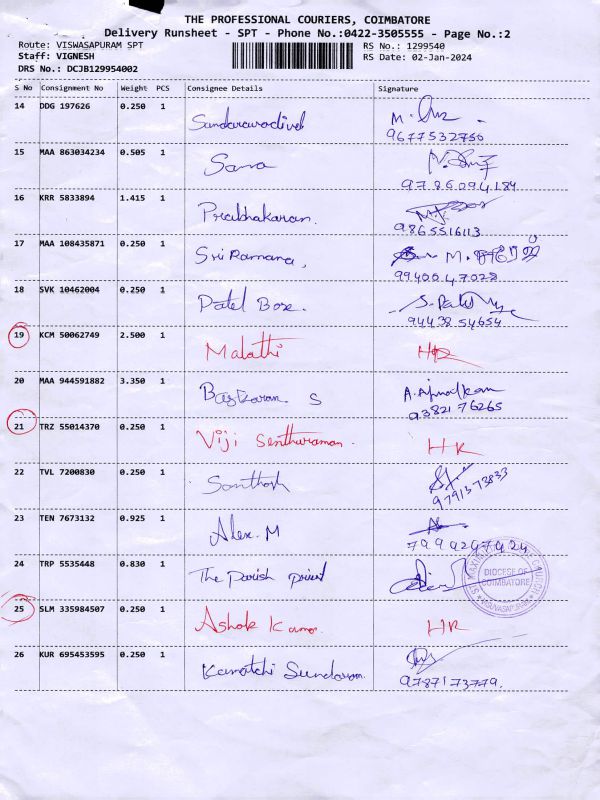 THE PROFESSIONAL COURIERS, COIMBATORE
Delivery Runsheet - SPT - Phone No.:0422-3505555 - Page No.:2
Route: VISWASAPURAM SPT RS No.: 1299540
Staff: VIGNESH RS Date: 02-Jan-2024
DRS No.: DCJB129954002
S No Consignment No Weight PCS Consignee Details Signature
14 DDG 197626 0.250 1
9677532750
15 MAA 863034234 0.505 1 Sana
9786094184
16 KRR 5833894 1.415 1 Prabhakaran.
9865516113
17 MAA 108435871 0.250 1 Sri Ramana,
9940047028
18 SVK 10462004 0.250 1 Patel Box. S. Patel
9443854654
19 KCM 50062749 2.500 1 Malathi HR
20 MAA 944591882 3.350 1 Baskaran S
9382176265
21 TRZ 55014370 0.250 1 Viji Senthuraman. HR
22 TVL 7200830 0.250 1 Santhosh
9791373833
23 TEN 7673132 0.925 1 Alex. M
7994297424
24 TRP 5535448 0.830 1 The Parish priest
DIOCESE OF
COIMBATORE
25 SLM 335984507 0.250 1 Ashok Kumar HR
26 KUR 695453595 0.250 1 Kamatchi Sundaram.
9787173779.